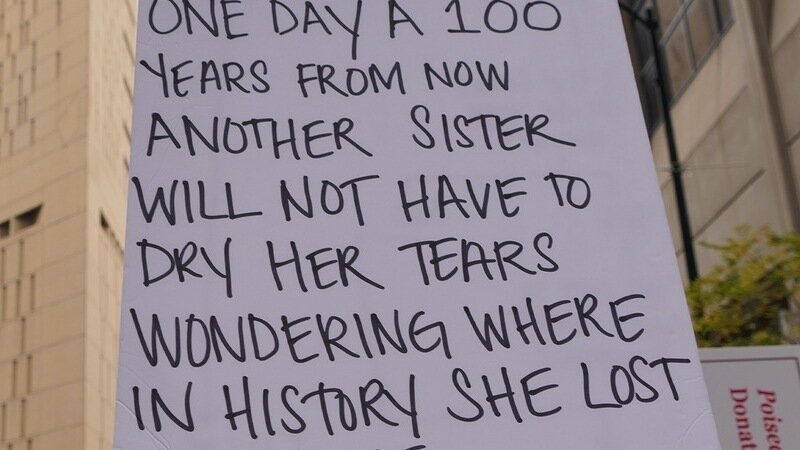 ONE DAY A 100
YEARS FROM NOW
ANOTHER SISTER
WILL NOT HAVE TO
DRY HER TEARS
WONDERING WHERE
IN HISTORY SHE LOST
Donat